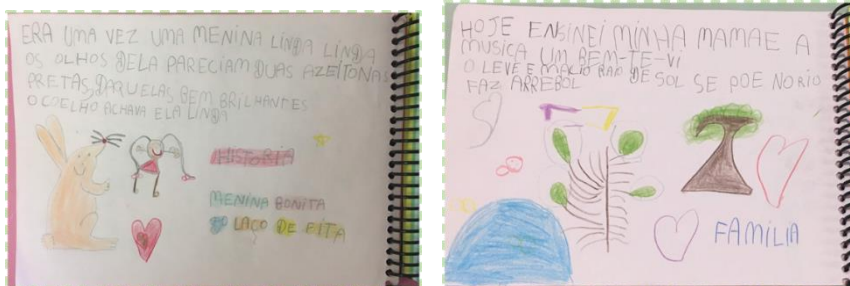 ERA UMA VEZ UMA MENINA LINDA LINDA
OS OLHOS DELA PARECIAM DUAS AZEITONAS
PRETAS, DAQUELAS BEM BRILHANTES
O COELHO ACHAVA ELA LINDA
HISTORIA
MENINA BONITA
DO LAÇO DE FITA
HOJE ENSINEI MINHA MAMAE A
MUSICA UM BEM-TE-VI
O LEVE E MACIO RAIO DE SOL SE POE NO RIO
FAZ ARREBOL
FAMILIA